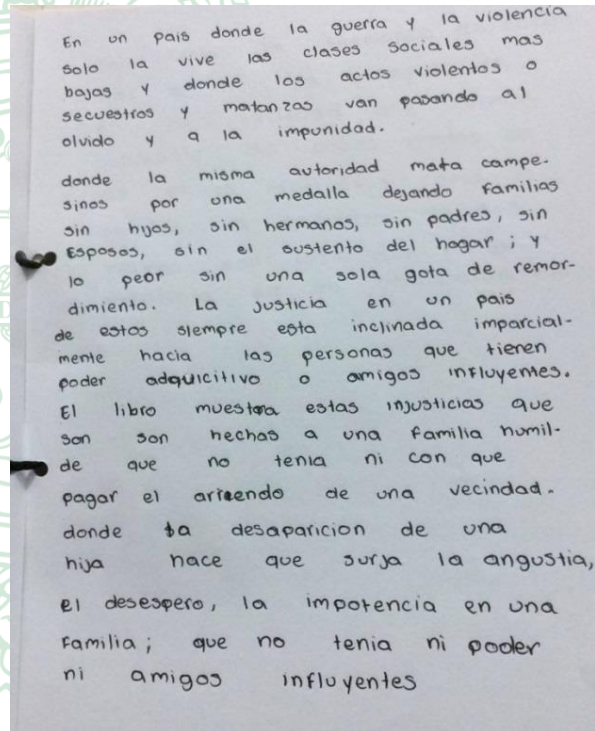 En un pais donde la guerra y la violencia
solo la vive las clases sociales mas
bajas y donde los actos violentos o
secuestros y matanzas van pasando al
olvido y a la impunidad.
donde la misma autoridad mata campe-
sinos por una medalla dejando familias
sin hijos, sin hermanos, sin padres, sin
Esposos, sin el sustento del hogar; y
lo peor sin una sola gota de remor-
dimiento. La justicia en un pais
de estos siempre esta inclinada imparcial-
mente hacia las personas que tienen
poder adquicitivo o amigos influyentes.
El libro muestra estas injusticias que
son son hechas a una familia humil-
de que no tenia ni con que
pagar el arriendo de una vecindad.
donde la desaparicion de una
hija hace que surja la angustia,
el desespero, la impotencia en una
familia; que no tenia ni poder
ni amigos influyentes